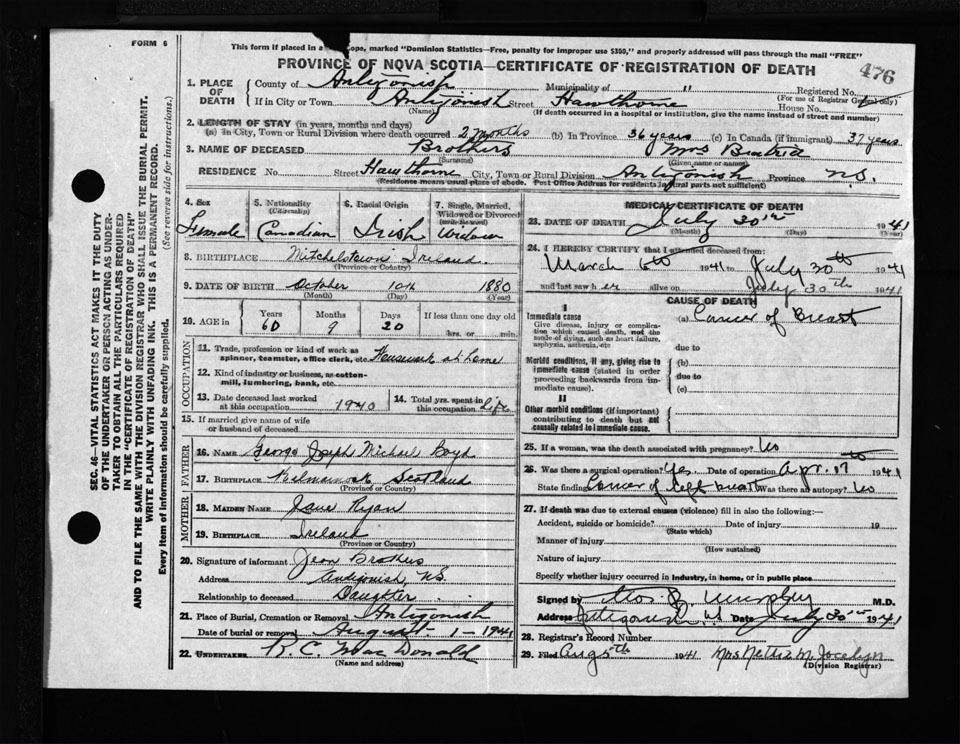 FORM 6
This form if placed in a ope, marked "Dominion Statistics—Free, penalty for improper use $300," and properly addressed will pass through the mail "FREE"
PROVINCE OF NOVA SCOTIA—CERTIFICATE OF REGISTRATION OF DEATH
476
1. PLACE OF DEATH County of Antigonish Municipality of " Registered No.
(For use of Registrar General only)
If in City or Town Antigonish Street Hawthorne House No.
(Name) (If death occurred in a hospital or institution, give the name instead of street and number)
2. LENGTH OF STAY (in years, months and days)
(a) in City, Town or Rural Division where death occurred 2 months (b) In Province 36 years (c) In Canada (if immigrant) 37 years
3. NAME OF DECEASED Brothers Mrs
(Surname) (Given name or names)
RESIDENCE No. Street Hawthorne City, Town or Rural Division Antigonish Province N.S.
(Residence means usual place of abode. Post Office Address for residents in rural parts not sufficient)
4. Sex Female
5. Nationality (Citizenship) Canadian
6. Racial Origin Irish
7. Single, Married, Widowed or Divorced (write the word) Widow
8. BIRTHPLACE Mitchelstown Ireland.
(Province or Country)
9. DATE OF BIRTH October 10th 1880
(Month) (Day) (Year)
10. AGE in Years Months Days If less than one day old
60 9 20 hrs. or min.
OCCUPATION
11. Trade, profession or kind of work as spinner, teamster, office clerk, etc. Housework at home
12. Kind of industry or business, as cotton-mill, lumbering, bank, etc.
13. Date deceased last worked at this occupation 1940 14. Total yrs. spent in this occupation Life
15. If married give name of wife or husband of deceased
FATHER
16. NAME George Joseph Michael Boyd
17. BIRTHPLACE Kilmarnock Scotland
(Province or Country)
MOTHER
18. MAIDEN NAME Jane Ryan
19. BIRTHPLACE Ireland
(Province or Country)
20. Signature of informant Jean Brothers
Address Antigonish, N.S.
Relationship to deceased Daughter
21. Place of Burial, Cremation or Removal Antigonish
Date of burial or removal August 1 - 1941
22. UNDERTAKER R. C. MacDonald
(Name and address)
MEDICAL CERTIFICATE OF DEATH
23. DATE OF DEATH July 30th 1941
(Month) (Day) (Year)
24. I HEREBY CERTIFY that I attended deceased from:
March 6th 1941 to July 30th 1941
and last saw her alive on July 30th 1941
CAUSE OF DEATH
I
Immediate cause (a) Cancer of breast
Give disease, injury or complication which caused death, not the mode of dying, such as heart failure, asphyxia, asthenia, etc.
due to
Morbid conditions, if any, giving rise to immediate cause (stated in order proceeding backwards from immediate cause).
(b)
due to
(c)
II
Other morbid conditions (if important) contributing to death but not causally related to immediate cause.
25. If a woman, was the death associated with pregnancy? No
26. Was there a surgical operation? Yes. Date of operation Apr. 17 1941
State finding Cancer of left breast Was there an autopsy? No
27. If death was due to external causes (violence) fill in also the following:—
Accident, suicide or homicide? Date of injury 19
(State which)
Manner of injury
(How sustained)
Nature of injury
Specify whether injury occurred in industry, in home, or in public place
Signed by Murphy M.D.
Address Antigonish N.S. Date July 30th 1941
28. Registrar's Record Number
29. Filed Aug 5th 1941 Mrs Nettie M. Jocelyn
(Division Registrar)
SEC. 46—VITAL STATISTICS ACT MAKES IT THE DUTY
OF THE UNDERTAKER OR PERSON ACTING AS UNDER-
TAKER TO OBTAIN ALL THE PARTICULARS REQUIRED
IN THE "CERTIFICATE OF REGISTRATION OF DEATH"
AND TO FILE THE SAME WITH THE DIVISION REGISTRAR WHO SHALL ISSUE THE BURIAL PERMIT.
WRITE PLAINLY WITH UNFADING INK. THIS IS A PERMANENT RECORD.
Every item of information should be carefully supplied. (See reverse side for instructions.)